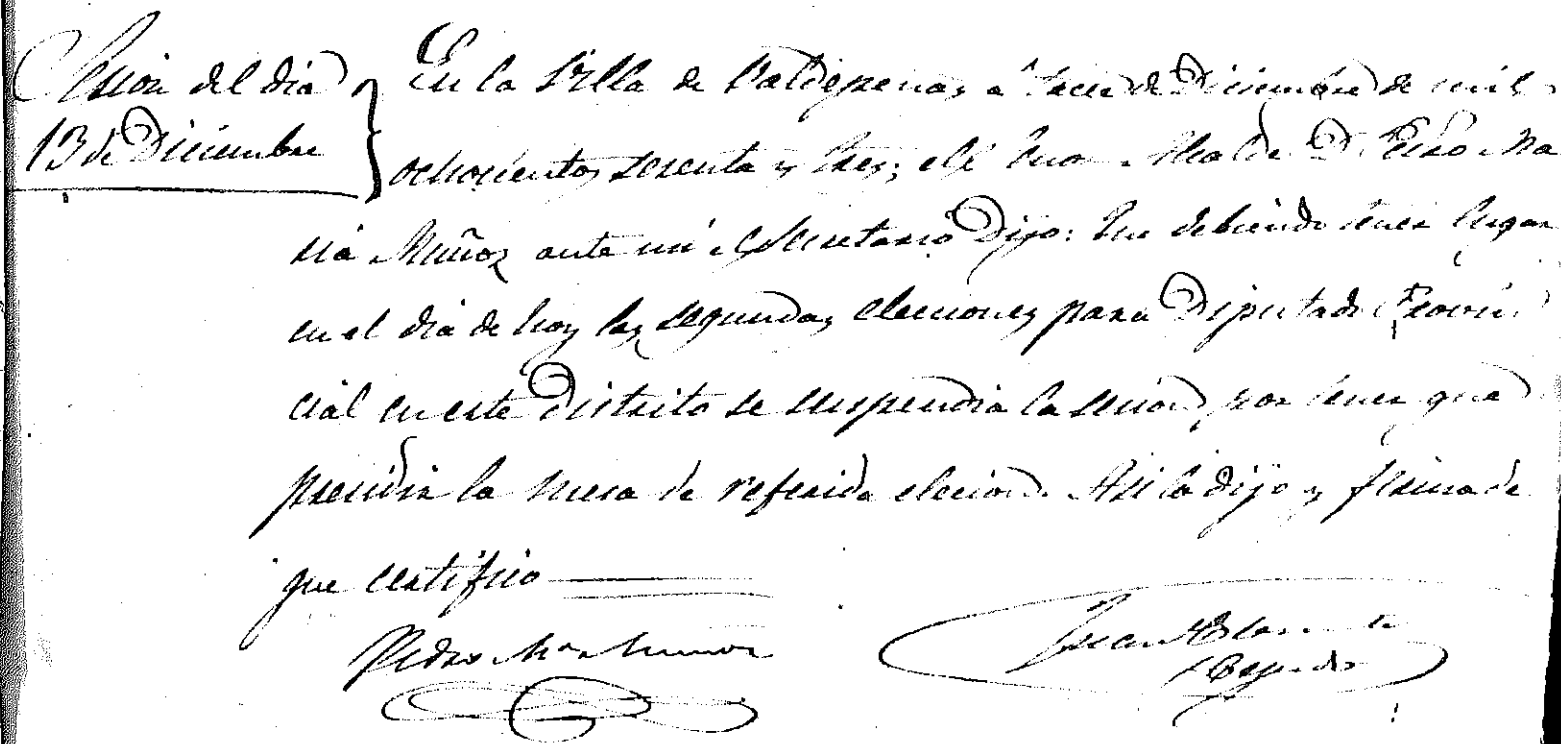 Sesion del dia
13 de Diciembre
En la Villa de Valdepeñas a trece de Diciembre de mil
ochocientos sesenta y tres; el Alcalde D. Pedro Ma
ria Muñoz ante mi el Secretario Dijo: Que debiendo tener lugar
en el dia de hoy las segundas elecciones para Diputado Provin
cial en este distrito se suspendia la sesion por tener que
presidir la mesa de referida eleccion. Asi lo dijo y firma de
que certifico
Pedro Mª Muñoz
Juan